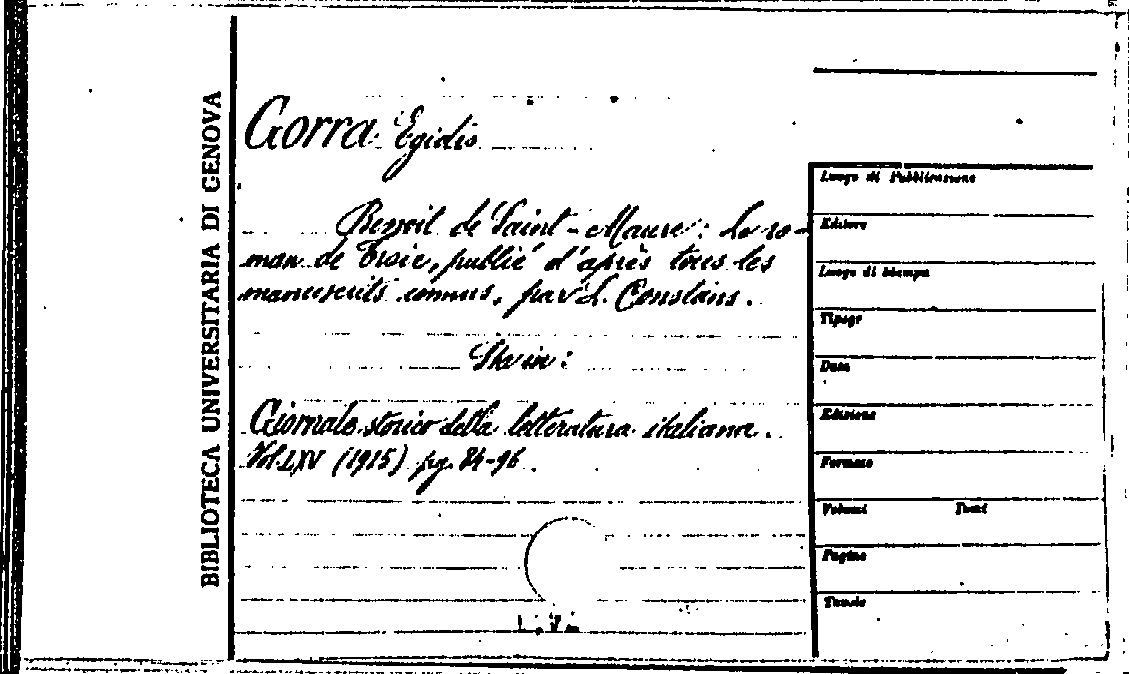 BIBLIOTECA UNIVERSITARIA DI GENOVA
Gorra Egidio
Benoit de Saint-Maure: Le ro-
man de Troie, publié d'après tous les
manuscrits connus, par L. Constans.
Sta in:
Giornale storico della letteratura italiana.
Vol. LXV (1915) pg. 84-96.
Luogo di Pubblicazione
Editore
Luogo di Stampa
Tipogr
Data
Edizione
Formato
Volumi Tomi
Pagine
Tavole